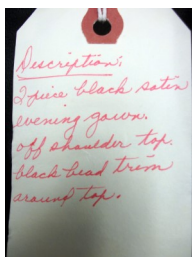 Description:
2 piece black satin
evening gown.
off shoulder top.
black bead trim
around top.